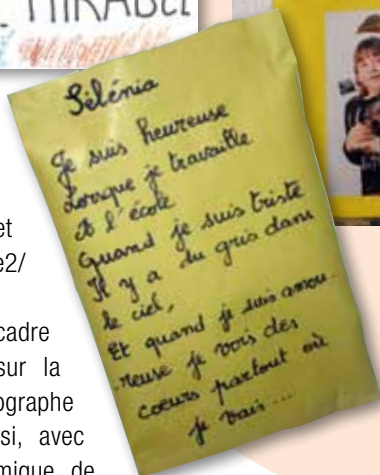 MIRABEL
Sélénia
Je suis heureuse
Lorsque je travaille
A l'école
Quand je suis triste
Il y a du gris dans
le ciel,
Et quand je suis amou-
reuse je vois des
coeurs partout où
je vais...
et
e2/
cadre
sur la
ographe
si, avec
mique de